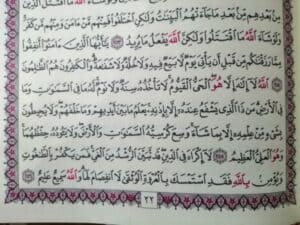 وَلَوْ شَآءَ ٱللَّهُ مَا ٱقْتَتَلَ ٱلَّذِينَ
مِنۢ بَعْدِهِم مِّنۢ بَعْدِ مَا جَآءَتْهُمُ ٱلْبَيِّنَٰتُ وَلَٰكِنِ ٱخْتَلَفُوا۟ فَمِنْهُم مَّنْ ءَامَنَ وَمِنْهُم مَّن كَفَرَ
وَلَوْ شَآءَ ٱللَّهُ مَا ٱقْتَتَلُوا۟ وَلَٰكِنَّ ٱللَّهَ يَفْعَلُ مَا يُرِيدُ ٢٥٣ يَٰٓأَيُّهَا ٱلَّذِينَ ءَامَنُوٓا۟ أَنفِقُوا۟
مِمَّا رَزَقْنَٰكُم مِّن قَبْلِ أَن يَأْتِىَ يَوْمٌ لَّا بَيْعٌ فِيهِ وَلَا خُلَّةٌ وَلَا شَفَٰعَةٌ وَٱلْكَٰفِرُونَ هُمُ ٱلظَّٰلِمُونَ
٢٥٤ ٱللَّهُ لَآ إِلَٰهَ إِلَّا هُوَ ٱلْحَىُّ ٱلْقَيُّومُ لَا تَأْخُذُهُۥ سِنَةٌ وَلَا نَوْمٌ لَّهُۥ مَا فِى ٱلسَّمَٰوَٰتِ وَمَا
فِى ٱلْأَرْضِ مَن ذَا ٱلَّذِى يَشْفَعُ عِندَهُۥٓ إِلَّا بِإِذْنِهِۦ يَعْلَمُ مَا بَيْنَ أَيْدِيهِمْ وَمَا خَلْفَهُمْ وَلَا يُحِيطُونَ
بِشَىْءٍ مِّنْ عِلْمِهِۦٓ إِلَّا بِمَا شَآءَ وَسِعَ كُرْسِيُّهُ ٱلسَّمَٰوَٰتِ وَٱلْأَرْضَ وَلَا يَـُٔودُهُۥ حِفْظُهُمَا
وَهُوَ ٱلْعَلِىُّ ٱلْعَظِيمُ ٢٥٥ لَآ إِكْرَاهَ فِى ٱلدِّينِ قَد تَّبَيَّنَ ٱلرُّشْدُ مِنَ ٱلْغَىِّ فَمَن يَكْفُرْ بِٱلطَّٰغُوتِ
وَيُؤْمِنۢ بِٱللَّهِ فَقَدِ ٱسْتَمْسَكَ بِٱلْعُرْوَةِ ٱلْوُثْقَىٰ لَا ٱنفِصَامَ لَهَا وَٱللَّهُ سَمِيعٌ عَلِيمٌ ٢٥٦